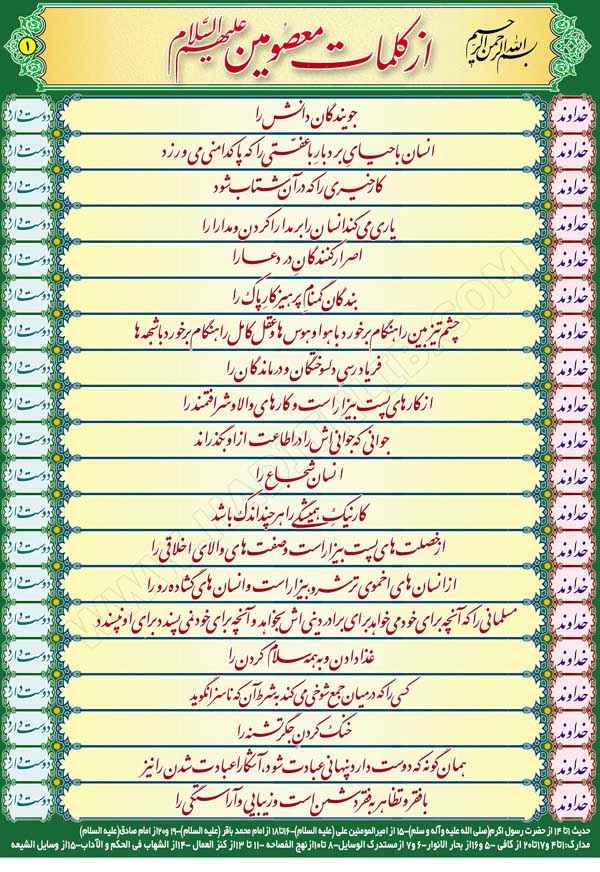 بسم الله الرحمن الرحیم
از کلمات معصومین علیهم السّلام
۱
خداوند جویندگان دانش را دوست دارد
خداوند انسان باحیای بردبارِ باعفّتی را که پاکدامنی می ورزد دوست دارد
خداوند کار خیری را که در آن شتاب شود دوست دارد
خداوند یاری می کند انسان را بر مدارا کردن و مدارا را دوست دارد
خداوند اصرار کنندگانِ در دعا را دوست دارد
خداوند بندگان گمنامِ پرهیزکارِ پاک را دوست دارد
خداوند چشم تیزبین را هنگام برخورد با هوا و هوس ها و عقل کامل را هنگام برخورد با شبهه ها دوست دارد
خداوند فریادرسی دلسوختگان و درماندگان را دوست دارد
خداوند از کارهای پست بیزار است و کارهای والا و شرافتمند را دوست دارد
خداوند جوانی که جوانی اش را در اطاعت از او بگذراند دوست دارد
خداوند انسان شجاع را دوست دارد
خداوند کار نیکِ همیشگی را هر چند اندک باشد دوست دارد
خداوند از خصلت های پست بیزار است و صفت های والای اخلاقی را دوست دارد
خداوند از انسان های اخموی ترشرو بیزار است و انسان های گشاده رو را دوست دارد
خداوند مسلمانی را که آنچه برای خود می خواهد برای برادر دینی اش بخواهد و آنچه برای خود نمی پسندد برای او نپسندد دوست دارد
خداوند غذا دادن و به همه سلام کردن را دوست دارد
خداوند کسی را که در میان جمع شوخی می کند به شرط آن که ناسزا نگوید دوست دارد
خداوند خنک کردنِ جگرِ تشنه را دوست دارد
خداوند همان گونه که دوست دارد پنهانی عبادت شود، آشکارا عبادت شدن را نیز دوست دارد
خداوند با فقر و تظاهر به فقر دشمن است و زیبایی و آراستگی را دوست دارد
حدیث ۱تا ۱۴ از حضرت رسول اکرم(صلی الله علیه وآله و سلم)-۱۵ از امیرالمومنین علی (علیه السلام)-۱۶تا۱۸ از امام محمد باقر (علیه السلام)-۱۹ و۲۰از امام صادق(علیه السلام)
مدارک:۱تا۴ و۱۷تا۲۰ از کافی -۵ و۱۶از بحار الانوار-۶ و۷ ازمستدرک الوسایل-۸ تا۱۰ازنهج الفصاحه -۱۱ تا ۱۳از کنز العمال -۱۴از الشهاب فی الحکم و الآداب-۱۵از وسایل الشیعه